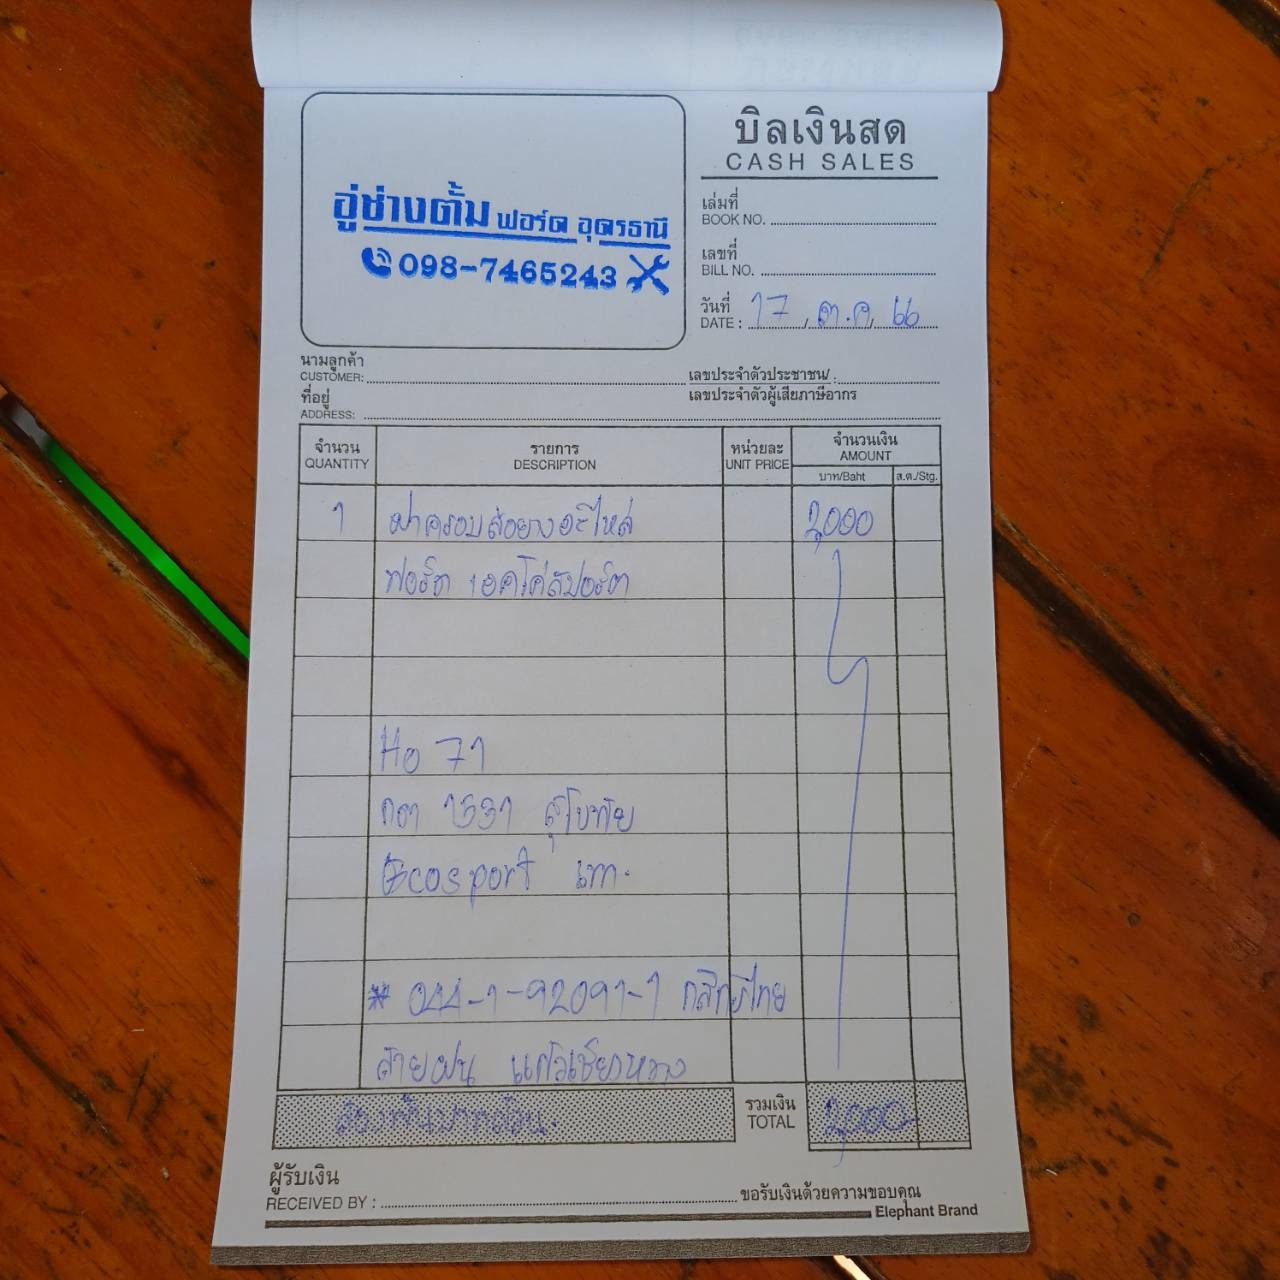 บิลเงินสด
CASH SALES
อู่ช่างตั้ม ฟอร์ด อุดรธานี
098-7465243
เล่มที่
BOOK NO.
เลขที่
BILL NO.
วันที่
DATE : 17 / ต.ค / 66
นามลูกค้า
CUSTOMER:
เลขประจำตัวประชาชน/ :
เลขประจำตัวผู้เสียภาษีอากร
ที่อยู่
ADDRESS:
จำนวน รายการ หน่วยละ จำนวนเงิน
QUANTITY DESCRIPTION UNIT PRICE AMOUNT
บาท/Baht ส.ต./Stg.
1 ฝาครอบล้อยางอะไหล่ 2,000
ฟอร์ด เอคโค่สปอร์ต
Ho 71
กตา 1531 สุโขทัย
Ecosport เทา.
* 044-1-92091-1 กสิกรไทย
สายฝน แก้วเชียงหวาง
สองพันบาทถ้วน.
รวมเงิน
TOTAL 2,000
ผู้รับเงิน
RECEIVED BY :
ขอรับเงินด้วยความขอบคุณ
Elephant Brand